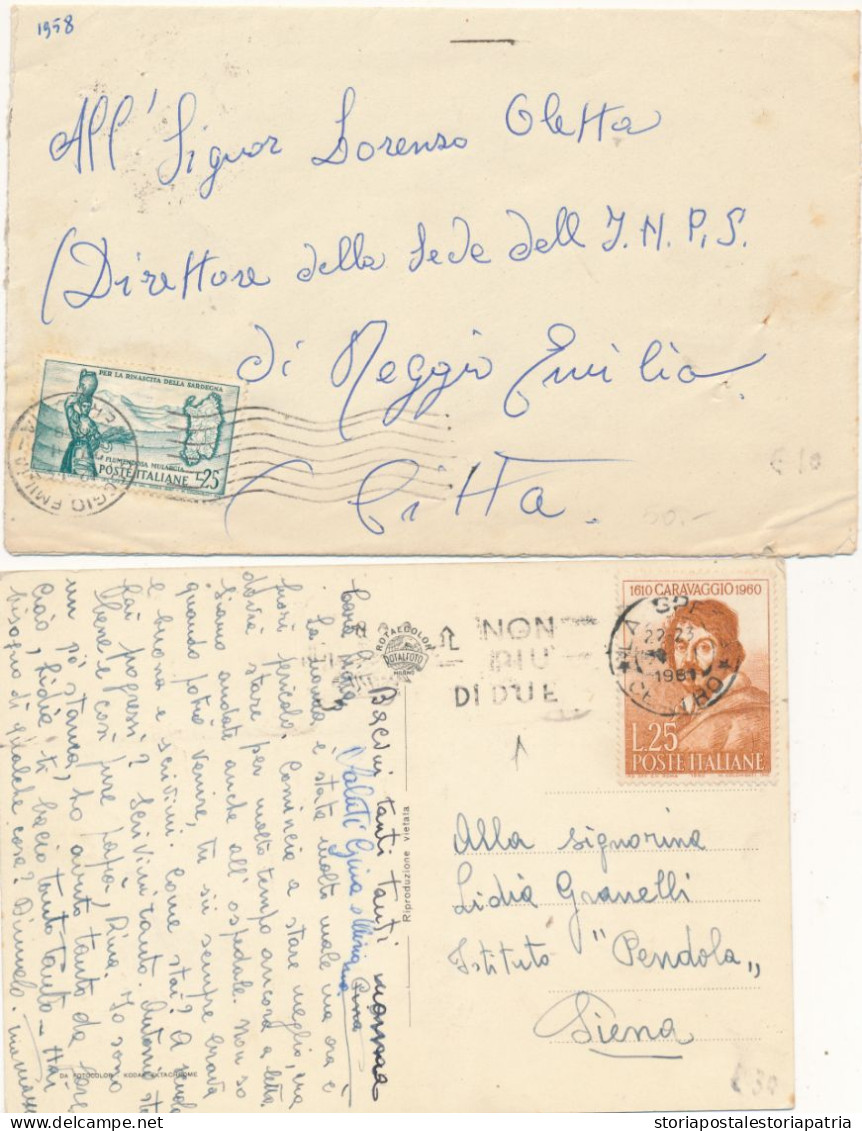 1958
All' Signor Lorenzo Oletta
(Direttore della Sede dell I.N.P.S.
di Reggio Emilia
Città.
PER LA RINASCITA DELLA SARDEGNA
FLUMENDOSA MULARGIA
POSTE ITALIANE L.25
REGGIO EMILIA
€ 10
50.-
1610 CARAVAGGIO 1960
L.25
POSTE ITALIANE
LA SPEZIA
22-23
1961
CENTRO
NON
PIU'
DI DUE
ROTALCOLOR
ROTALFOTO
MILANO
Alla signorina
Lidia Granelli
Istituto "Pendola„
Siena
Cara Lidia,
La nonna è stata molto male ma ora è
fuori pericolo. Comincia a stare meglio, ma
dovrà stare per molto tempo ancora a letto.
Siamo andate anche all'ospedale. Non so
quando potrò venire, tu sii sempre brava
e buona e scrivimi. Come stai? A scuola
fai progressi? Scrivimi tanto. Antonio sta
bene e così pure papà, Pina. Io sono
un pò stanca, ho avuto tanto da fare
Ciao, Lidia ti bacio tanto tanto tanto - Hai
bisogno di qualche cosa? Dimmelo. mamma
Bacini tanti tanti nonna
Saluti Gina e
Pina
Riproduzione vietata
DA FOTOCOLOR KODAK EKTACHROME
€ 30
storiapostalestoriapatria